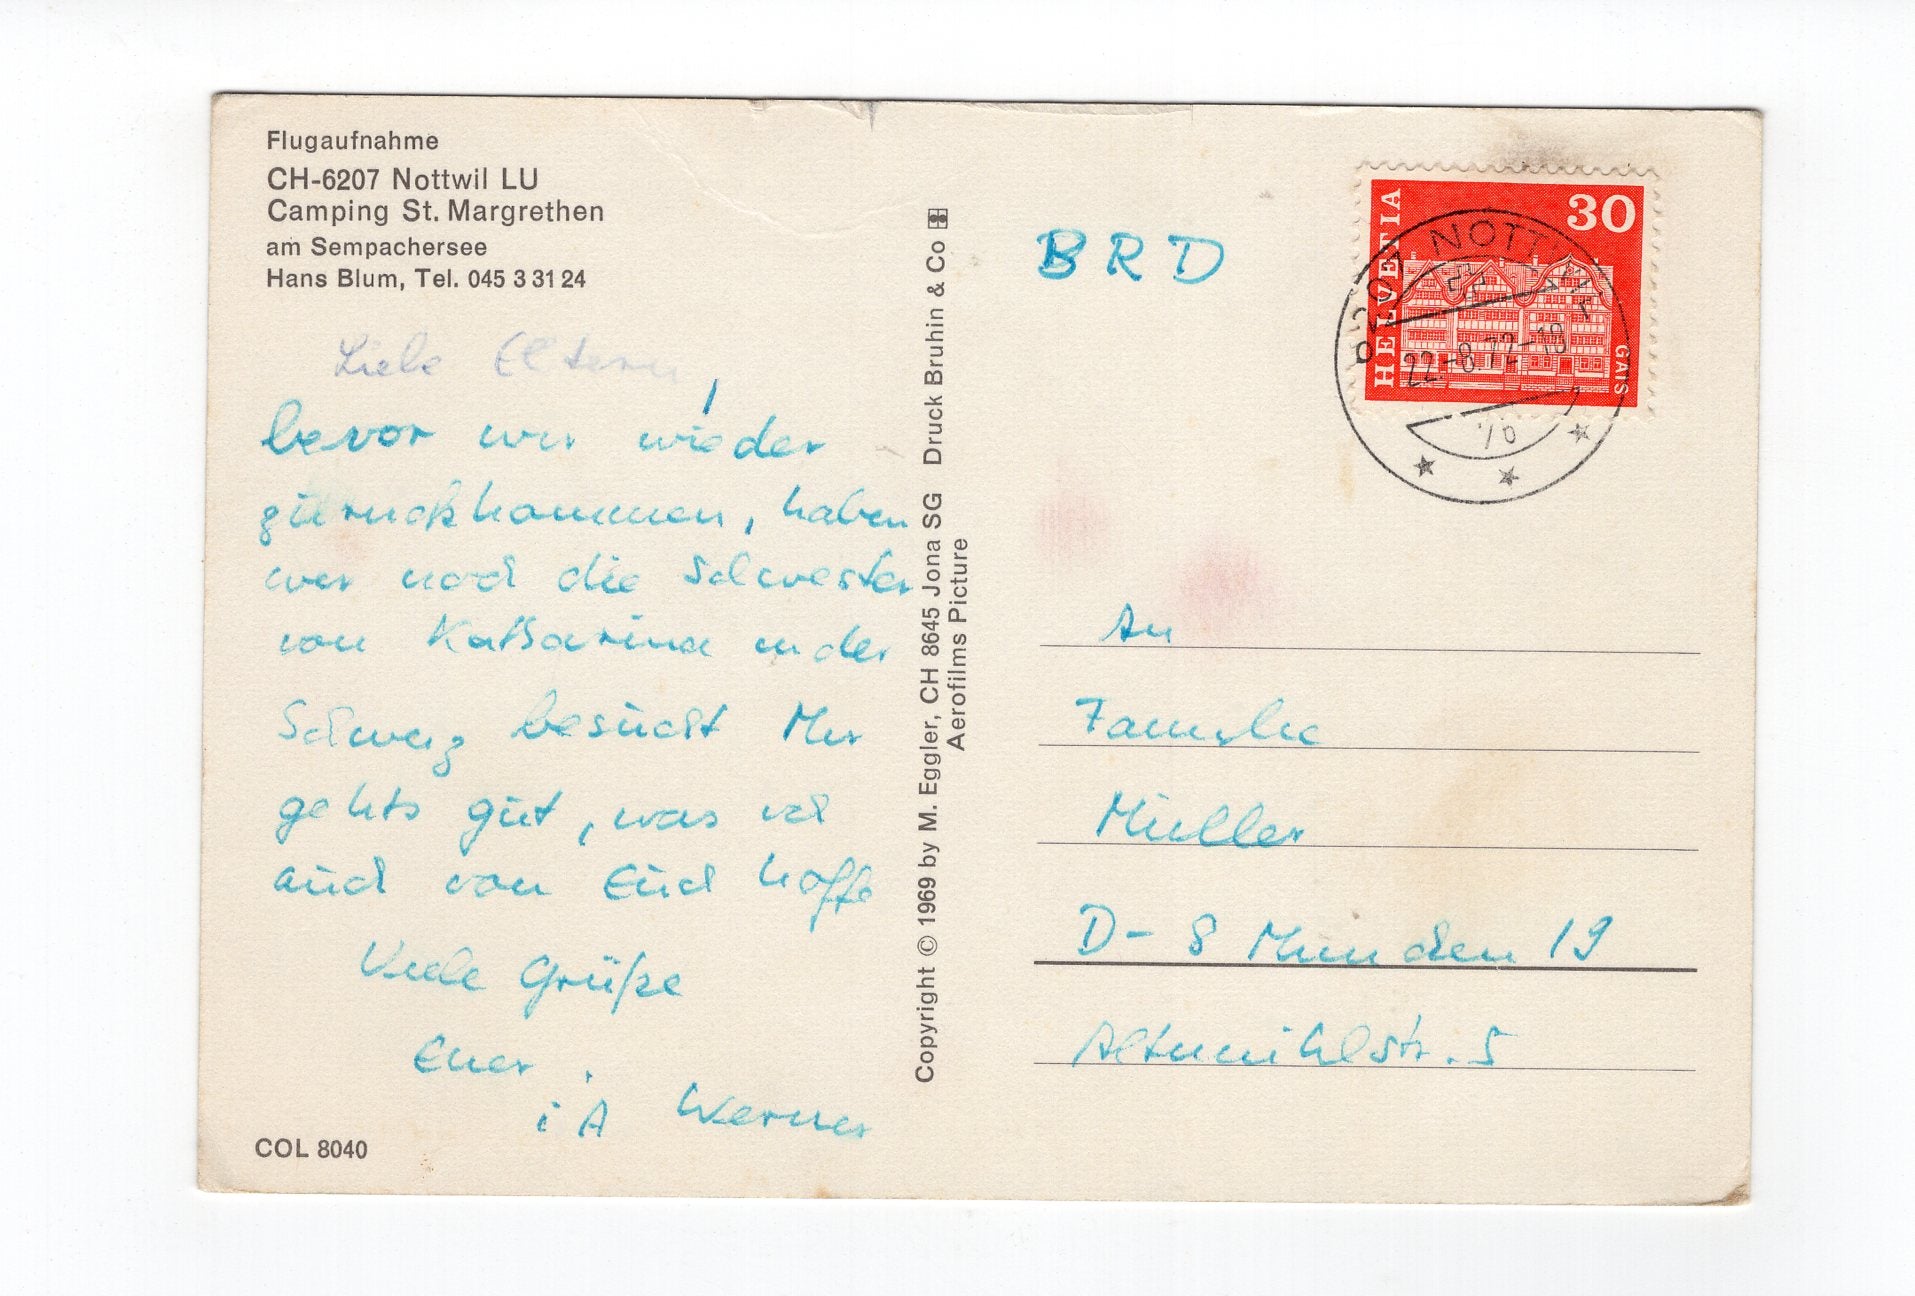 Flugaufnahme
CH-6207 Nottwil LU
Camping St. Margrethen
am Sempachersee
Hans Blum, Tel. 045 3 31 24
Liebe Eltern,
bevor wir wieder
zurückkommen, haben
wir noch die Schwester
von Katharina in der
Schweiz besucht Mir
gehts gut, was ich
auch von Euch hoffe
Viele Grüße
Euer
i A Werner
COL 8040
Copyright © 1969 by M. Eggler, CH 8645 Jona SG Druck Bruhin & Co
Aerofilms Picture
BRD
HELVETIA
30
GAIS
6207 NOTTWIL
22.-8.72-19
An
Familie
Müller
D- 8 München 19
Altmühlstr. 5